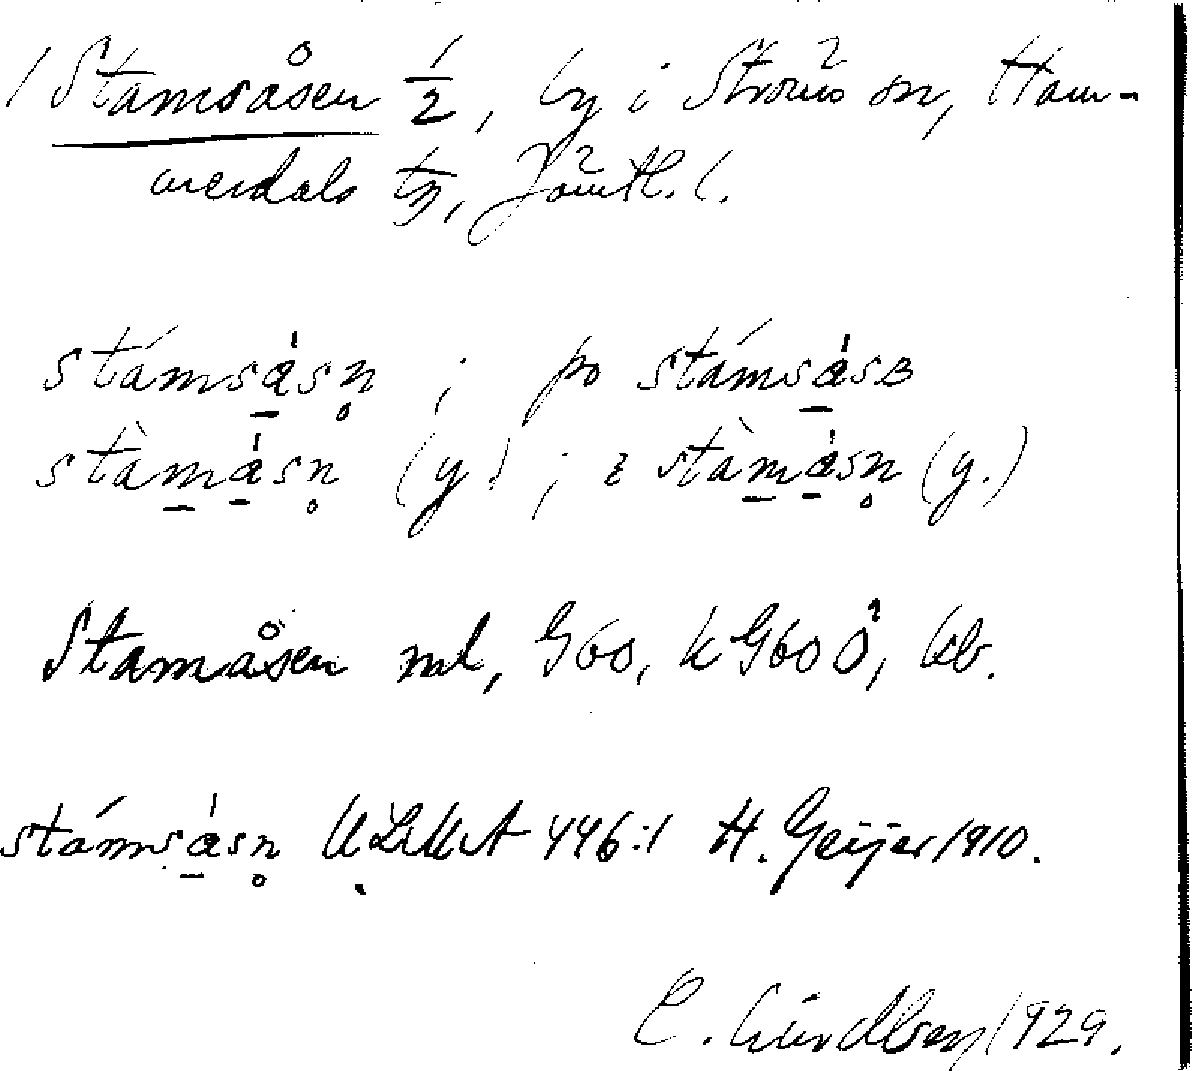 / Stamsåsen 1/2, by i Ströms sn, Ham-
merdals tg, Jämtl. l.
stámsásn̥ ; po stámsásʙ
stàmásn̥ (y) ; i stàmásn̥ (y.)
Stamåsen ml, G60, k G60 Ö, kb.
stámsásn̥ ULMA 446:1 H. Geijer 1910.
E. Lundberg 1929.